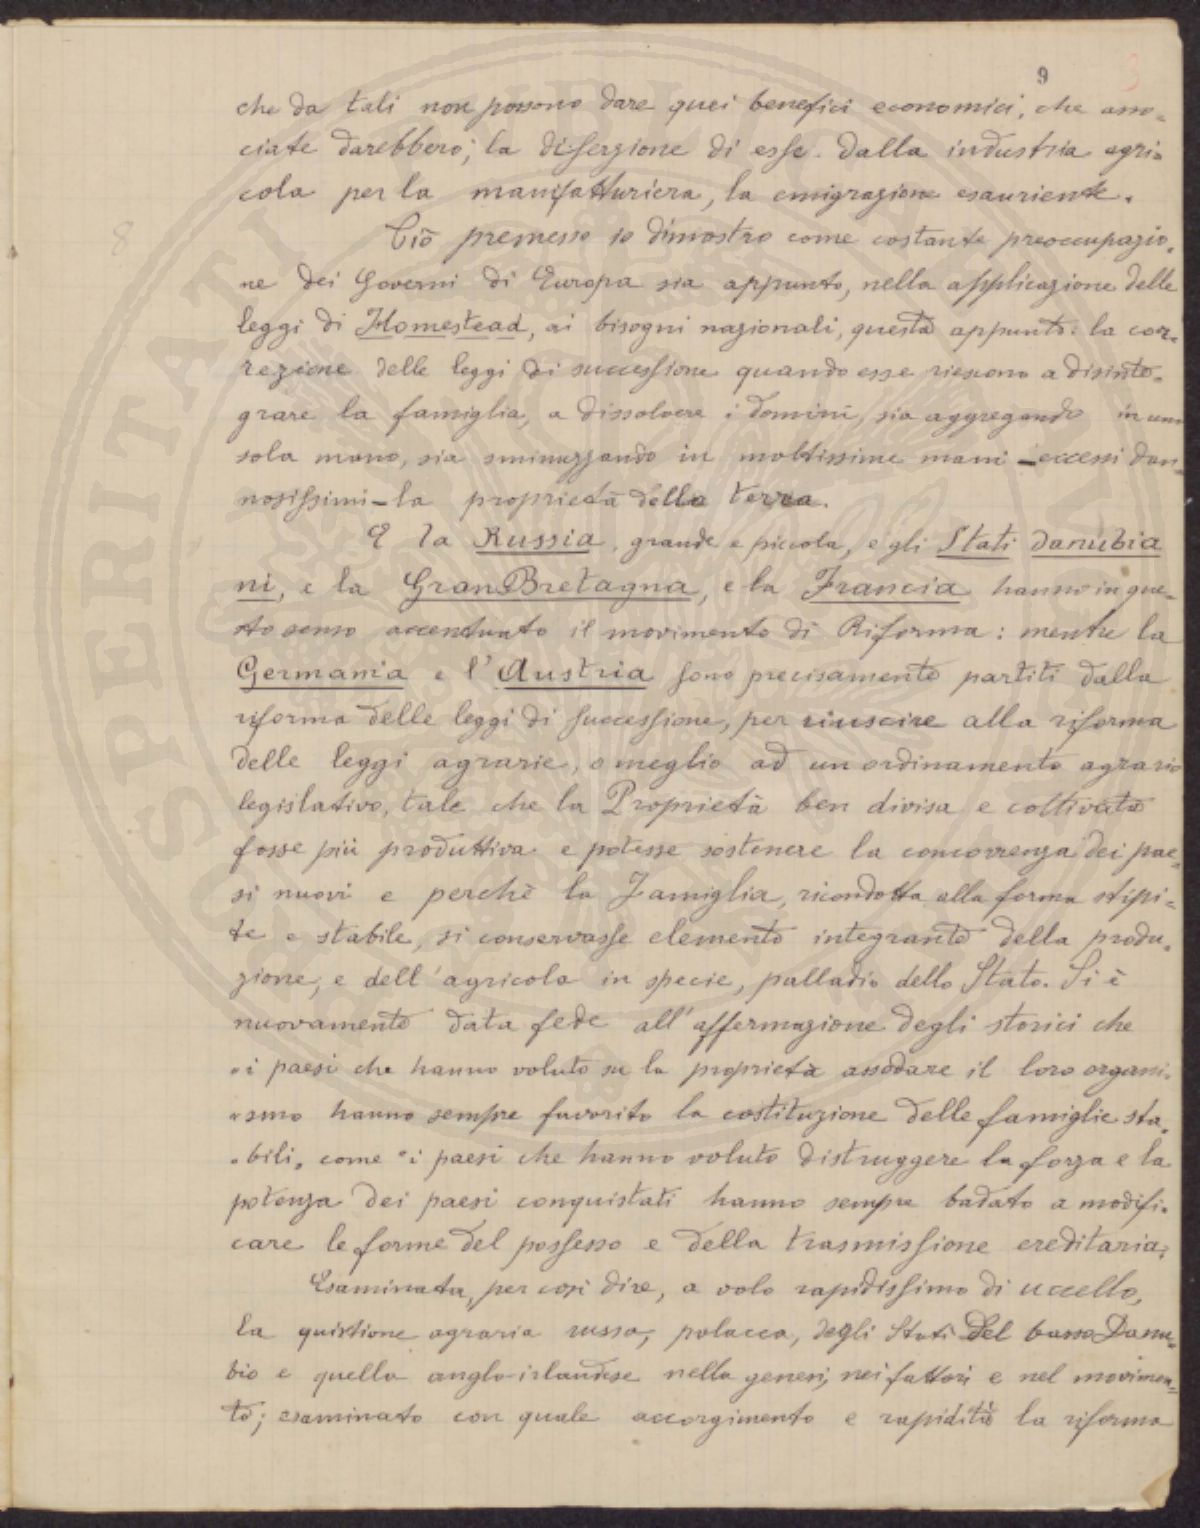 9
3
8
che da tali non possono dare quei benefici economici, che asso-
ciate darebbero; la diserzione di esse dalla industria agri-
cola per la manifatturiera, la emigrazione esauriente.
Ciò premesso io dimostro come costante preoccupazio-
ne dei Governi di Europa sia appunto, nella applicazione delle
leggi di Homestead, ai bisogni nazionali, questa appunto: la cor-
rezione delle leggi di successione quando esse riescono a disinte-
grare la famiglia, a dissolvere i domini, sia aggregando in una
sola mano, sia sminuzzando in moltissime mani – eccessi dan-
nosissimi – la proprietà della terra.
E la Russia, grande e piccola, e gli Stati danubia
ni, e la Gran Bretagna, e la Francia hanno in que-
sto senso accentuato il movimento di Riforma: mentre la
Germania e l'Austria sono precisamente partiti dalla
riforma delle leggi di successione, per riuscire alla riforma
delle leggi agrarie, o meglio ad un ordinamento agrario
legislativo, tale che la Proprietà ben divisa e coltivata
fosse più produttiva e potesse sostenere la concorrenza dei pae-
si nuovi e perchè la Famiglia, ricondotta alla forma stipi-
te e stabile, si conservasse elemento integrante della produ-
zione, e dell'agricola in specie, palladio dello Stato. Si è
nuovamente data fede all'affermazione degli storici che
"i paesi che hanno voluto su la proprietà assodare il loro organi-
"smo hanno sempre favorito la costituzione delle famiglie sta-
"bili" come "i paesi che hanno voluto distruggere la forza e la
potenza dei paesi conquistati hanno sempre badato a modifi-
care le forme del possesso e della trasmissione ereditaria;
Esaminata, per così dire, a volo rapidissimo di uccello,
la quistione agraria russa, polacca, degli Stati del basso Danu-
bio e quella anglo-irlandese nella genesi, nei fattori e nel movimen-
to; esaminato con quale accorgimento e rapidità la riforma
SOSPERITATI PUBLICAE AUGENDAE